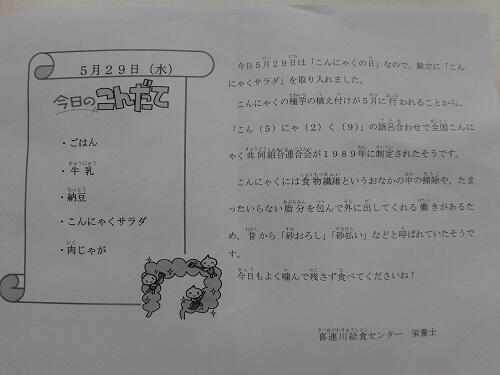 5月29日（水）
今日のこんだて
・ごはん
・牛乳
・納豆
・こんにゃくサラダ
・肉じゃが
今日5月29日は「こんにゃくの日」なので、献立に「こん
にゃくサラダ」を取り入れました。
こんにゃくの種芋の植え付けが5月に行われることから、
「こん（5）にゃ（2）く（9）」の語呂合わせで全国こんに
ゃく共同組合連合会が1989年に制定されたそうです。
こんにゃくには食物繊維というおなかの中の掃除や、たま
ったいらない脂分を包んで外に出してくれる働きがあるた
め、昔から「砂おろし」「砂払い」などと呼ばれていたそうで
す。
今日もよく噛んで残さず食べてくださいね！
喜連川給食センター　栄養士